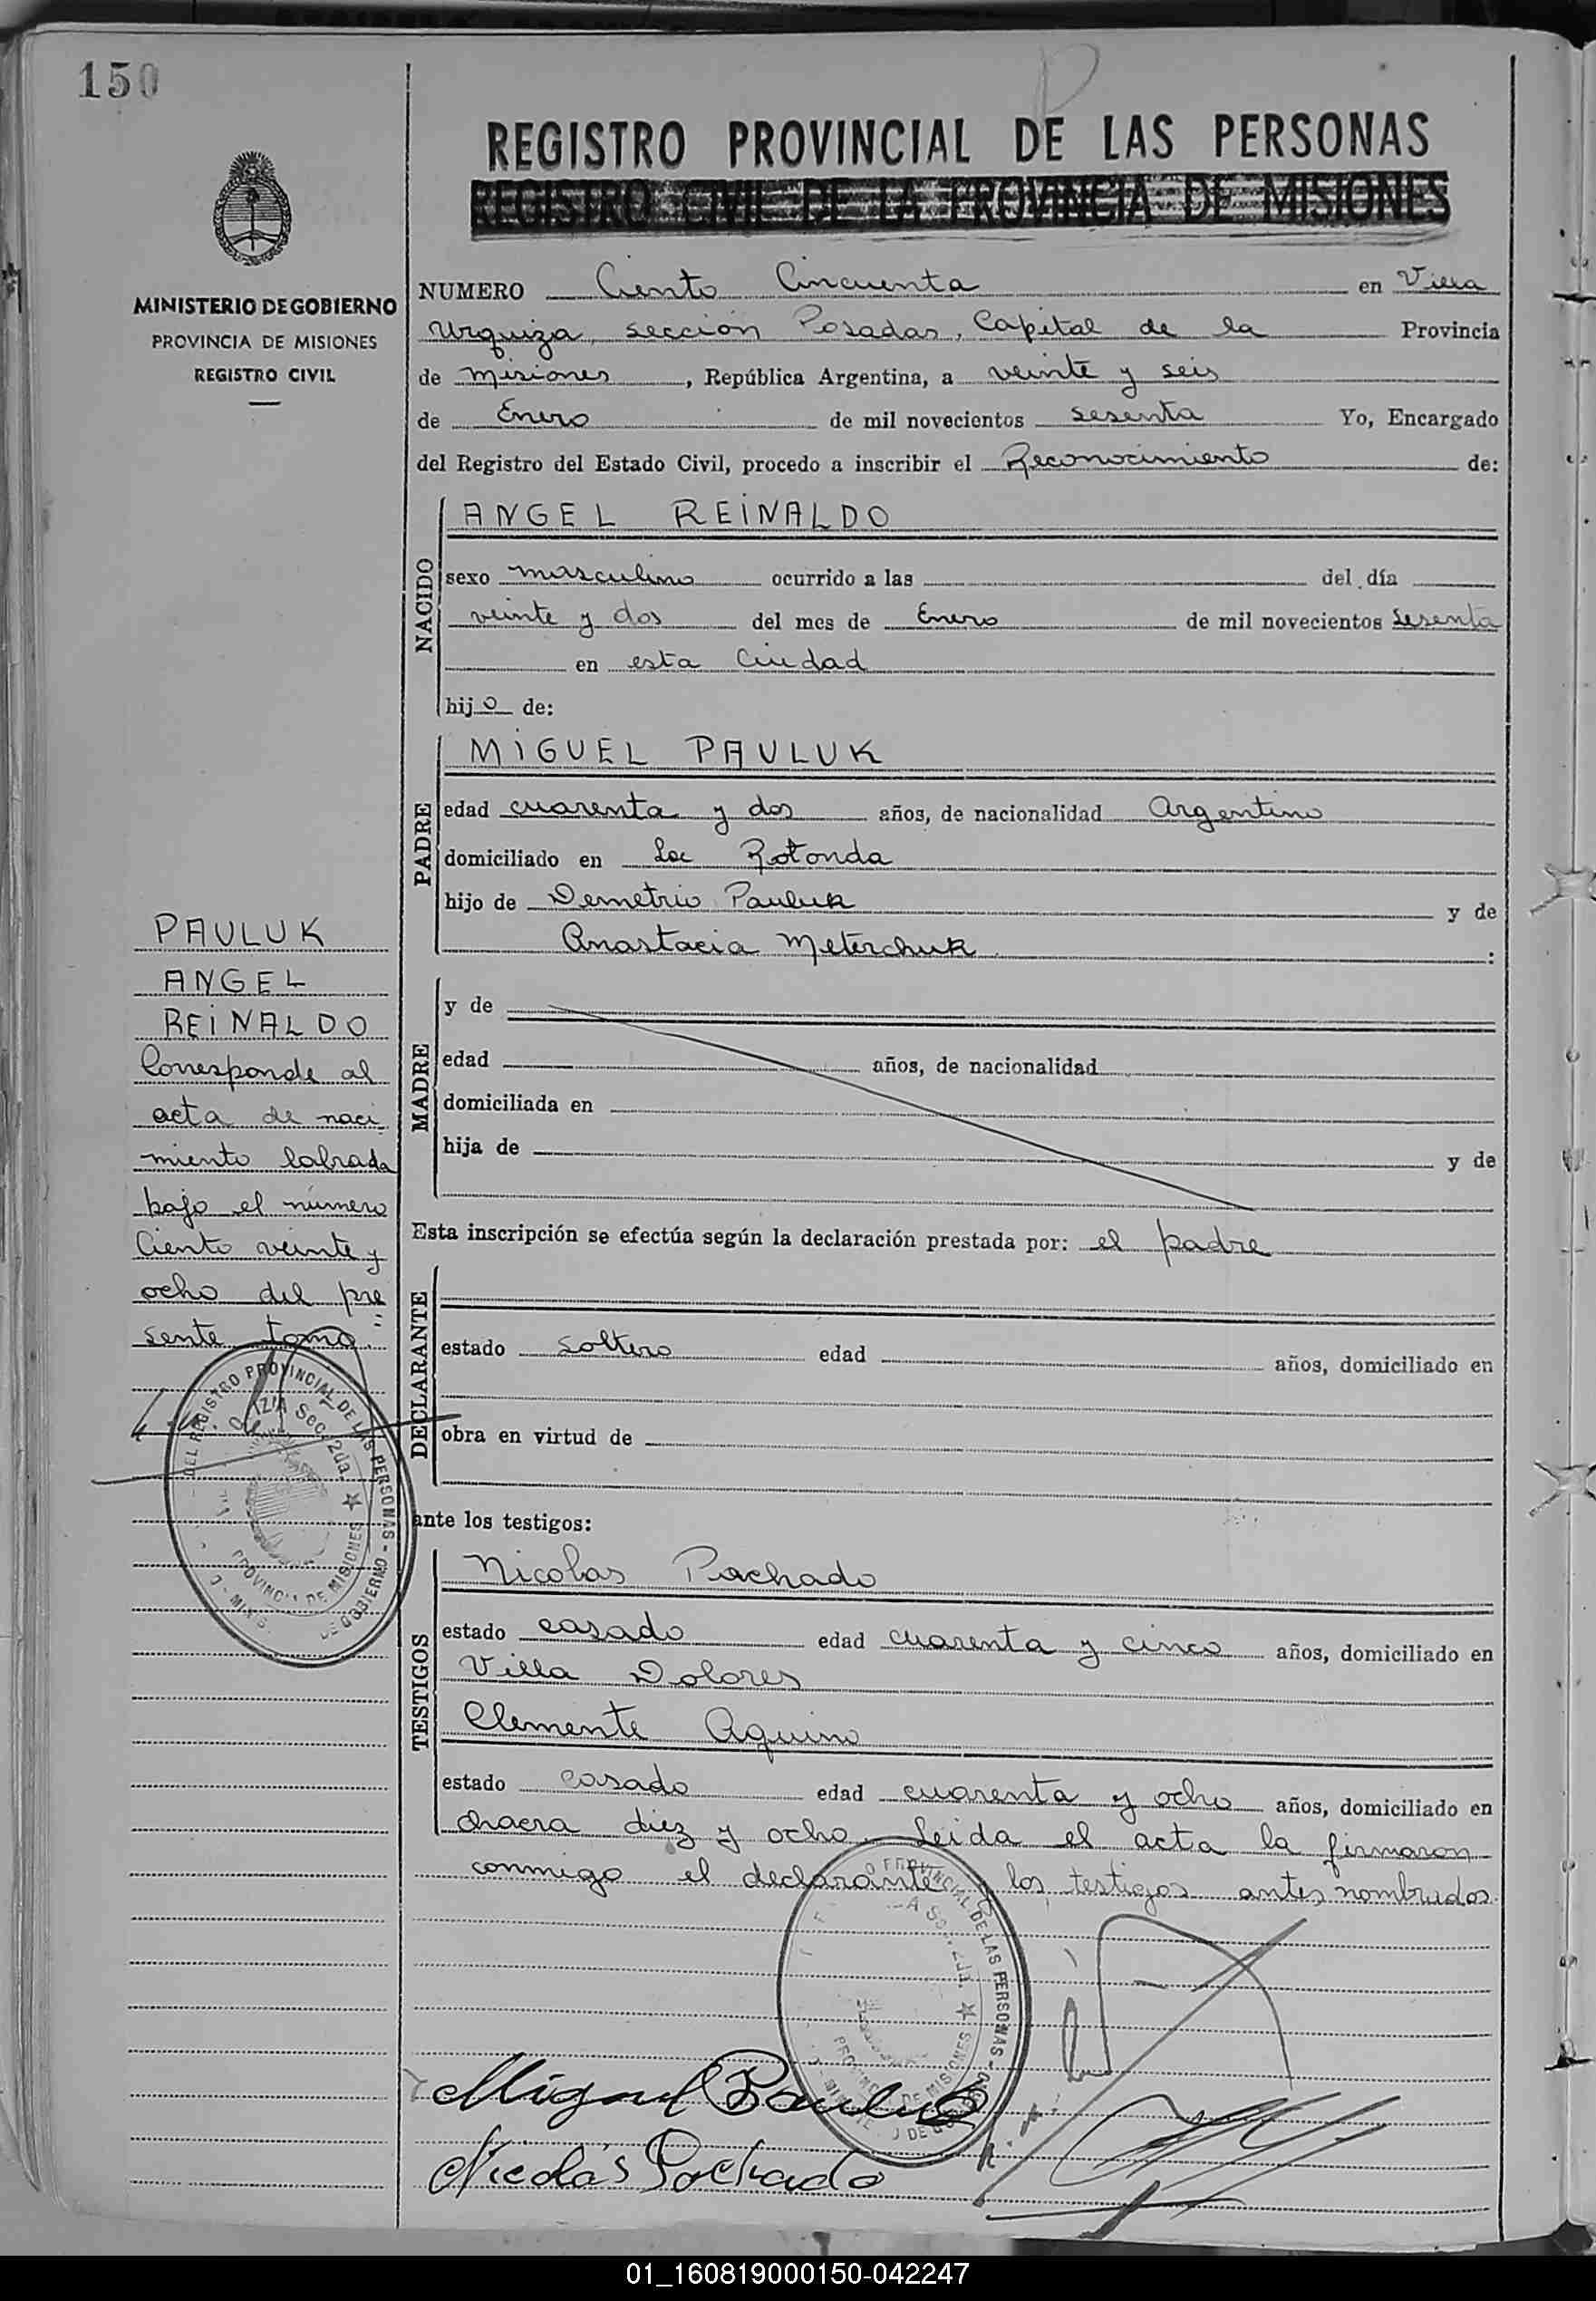 150
MINISTERIO DE GOBIERNO
PROVINCIA DE MISIONES
REGISTRO CIVIL
REGISTRO PROVINCIAL DE LAS PERSONAS
REGISTRO CIVIL DE LA PROVINCIA DE MISIONES
NUMERO Ciento Cincuenta en Villa
Urquiza, sección Posadas, Capital de la Provincia
de Misiones, República Argentina, a veinte y seis
de Enero de mil novecientos sesenta Yo, Encargado
del Registro del Estado Civil, procedo a inscribir el Reconocimiento de:
NACIDO
ANGEL REINALDO
sexo masculino ocurrido a las del día
veinte y dos del mes de Enero de mil novecientos sesenta
en esta Ciudad
hijo de:
PADRE
MIGUEL PAULUK
edad cuarenta y dos años, de nacionalidad Argentino
domiciliado en La Rotonda
hijo de Demetrio Pauluk y de
Anastacia Meterchuk :
MADRE
y de
edad años, de nacionalidad
domiciliada en
hija de y de
Esta inscripción se efectúa según la declaración prestada por: el padre
DECLARANTE
estado soltero edad años, domiciliado en
obra en virtud de
ante los testigos:
TESTIGOS
Nicolas Pochado
estado casado edad cuarenta y cinco años, domiciliado en
Villa Dolores
Clemente Aquino
estado casado edad cuarenta y ocho años, domiciliado en
chacra diez y ocho. Leida el acta la firmaron
conmigo el declarante y los testigos antes nombrados.
PAULUK
ANGEL
REINALDO
Corresponde al
acta de naci
miento labrada
bajo el número
Ciento veinte y
ocho del pre
sente tomo."
DEL REGISTRO PROVINCIAL DE LAS PERSONAS - DE GOBIERNO
Sec. 2da. ★
PROVINCIA DE MISIONES
PROVINCIAL DE LAS PERSONAS
2da. ★
PROVINCIA DE MISIONES
Miguel Pauluk
Nicolás Pochado
01_160819000150-042247